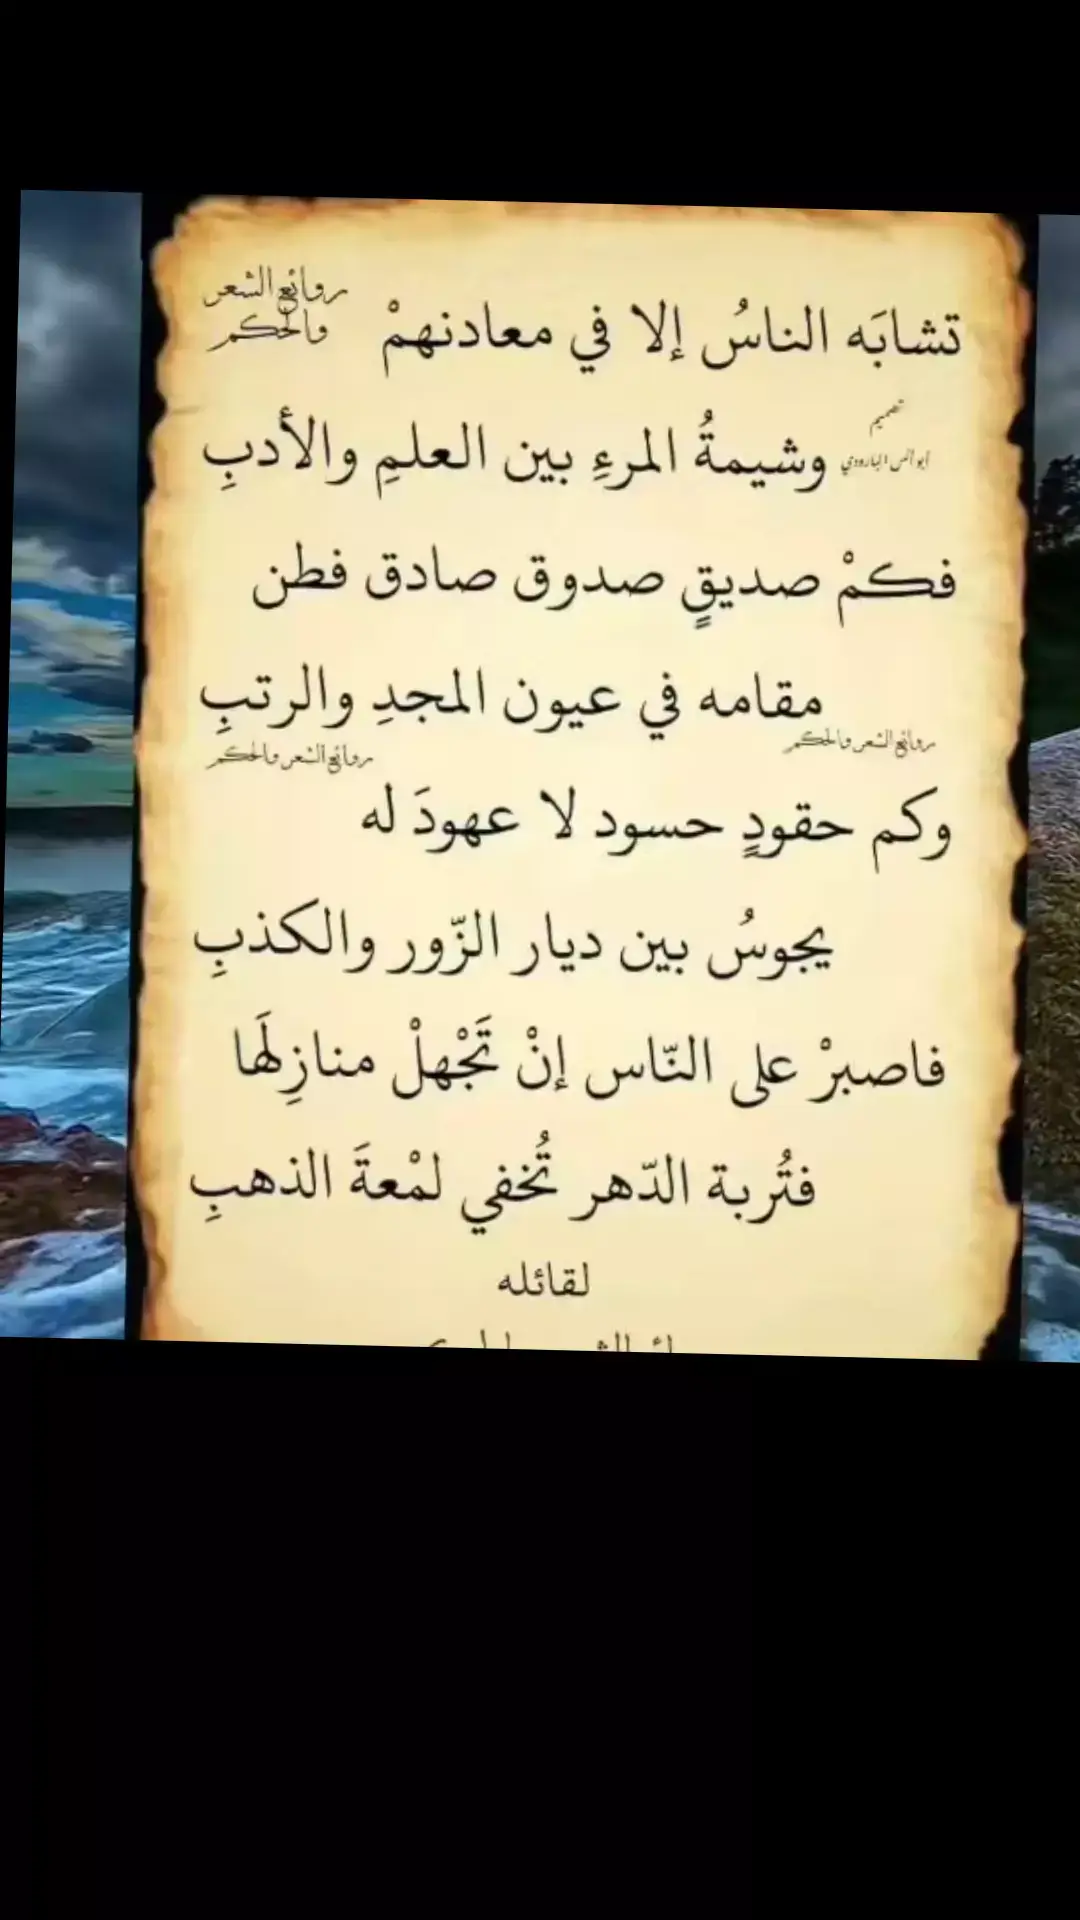 روائع الشعر
والحكم
تشابَه الناسُ إلا في معادنهمْ
تصميم
أبو أنس البارودي
وشيمةُ المرءِ بين العلمِ والأدبِ
فكمْ صديقٍ صدوق صادق فطن
مقامه في عيون المجدِ والرتبِ
روائع الشعر والحكم
روائع الشعر والحكم
وكم حقودٍ حسود لا عهودَ له
يجوسُ بين ديار الزّور والكذبِ
فاصبرْ على النّاس إنْ تَجْهلْ منازِلَها
فتُربة الدّهر تُخفي لمْعةَ الذهبِ
لقائله